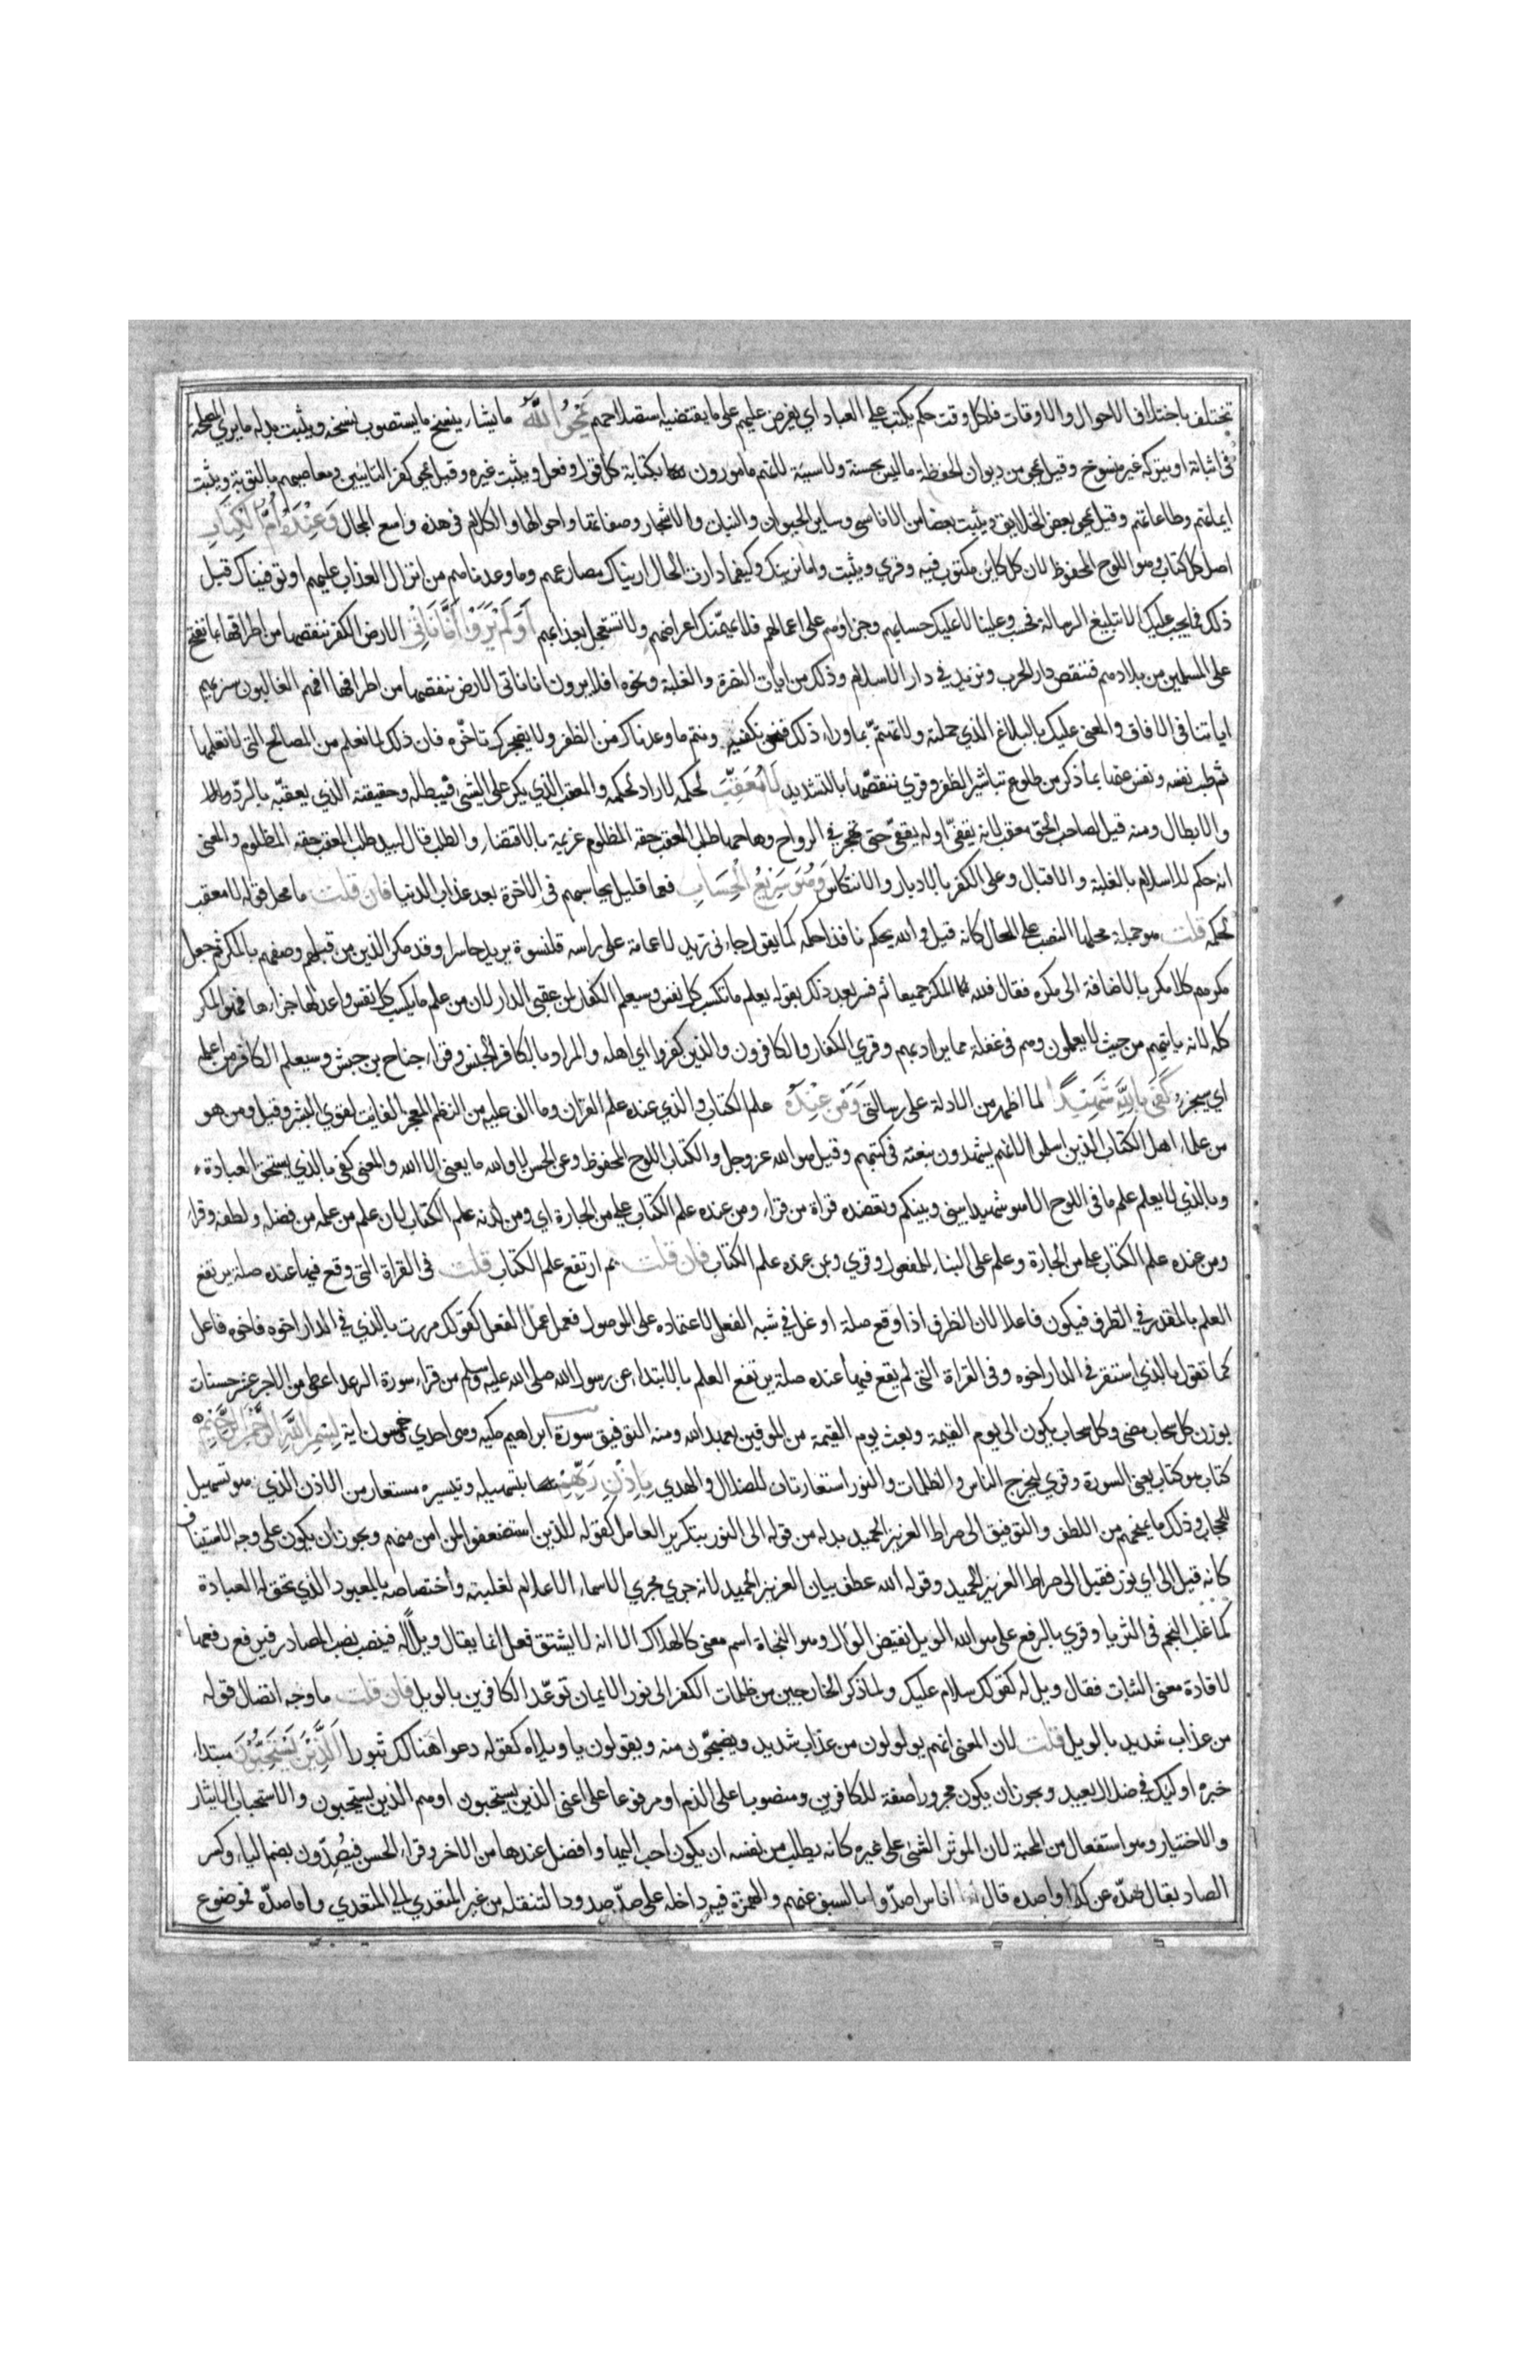 تختلف باختلاف الاحوال والاوقات فلكل وقت حكم يكتب على العباد اي يفرض عليهم على ما يقتضيه استصلاحهم يَمْحُوا اللّٰهُ ما يشاء ينسخ ما يستصوب نسخه ويثبت بدله ما يري المصلحة
في اثباته او يتركه غير منسوخ وقيل يمحي من ديوان الحفظة ما ليس بحسنة ولا سيئة لانهم مامورون بكتابة كل قول وفعل ويثبت غيره وقيل يمحي كفر التايبين ومعاصيهم بالتوبة ويثبت
ايمانهم وطاعاتهم وقيل يمحي بعض الخلايق ويثبت بعضا من الاناسي وساير الحيوان والنبات والاشجار وصفاتها واحوالها والكلام في هذه واسع المجال وَعِنْدَهُ اُمُّ الْكِتَابِ
اصل كل كتاب وهو اللوح المحفوظ لان كل كاين مكتوب فيه وقري ويثبت واما نرينك وكيفما دارت الحال اريناك مصارعهم وما وعدناهم من انزال العذاب عليهم او توفيناك قبل
ذلك فما يجب عليك الا تبليغ الرسالة فحسب وعلينا لا عليك حسابهم وجزاوهم على اعمالهم فلا يهمّنك اعراضهم ولا تستعجل بعذابهم اَوَلَمْ يَرَوْا اَنَّا نَاتِي الارض الكفر ننقصها من اطرافها بما نفتح
على المسلمين من بلادهم فننقص دار الحرب ونزيد في دار الاسلام وذلك من ايات النصرة والغلبة ونحوه افلا يرون انا ناتي الارض ننقصها من اطرافها افهم الغالبون سنريهم
اياتنا في الافاق والمعنى عليك بالبلاغ الذي حملته ولا تهتمّ بما وراء ذلك فنحن نكفيكه ونتم ما وعدناك من الظفر ولا يضجرك تاخّره فان ذلك لما نعلم من المصالح التي لا تعلمها
ثم طيب نفسه ونفس عنها بما ذكر من طلوع تباشير الظفر وقري ننقصّها بالتشديد لَا مُعَقِّبَ لحكمه لا راد لحكمه والمعقب الذي يكر على الشئ فيبطله وحقيقته الذي يعقبّه بالردّ
والابطال ومنه قيل لصاحب الحق معقب لانه يقفّي حتى تهجر في الرواح وهاجها طلب المعقب حقه المظلوم غريمه بالاقتضاء والطلب قال لبيد طلب المعقب حقه المظلوم والمعنى
انه حكم للاسلام بالغلبة والاقبال وعلى الكفر بالادبار والانتكاس وَهُوَ سَرِيْعُ الْحِسَابِ فعما قليل يحاسبهم في الاخرة بعد عذاب الدنيا فان قلت ما محل قوله لا معقب
لحكمه قلت هو جملة محلها النصب على الحال كانه قيل والله يحكم نافذا حكمه كما يقول جاءني زيد لا عمامة على راسه قلنسوة يريد حاسرا وقد مكر الذين من قبلهم وصفهم بالمكر ثم جعل
مكرهم كلا مكر بالاضافة الى مكره فقال فلله المكر جميعا ثم فسر بعد ذلك بقوله يعلم ما تكسب كل نفس وسيعلم الكفار لمن عقبى الدار لان من علم ما يكسب كل نفس واعد لها جزاءها فهو المكر
كله لانه ياتيهم من حيث لا يعلمون وهم في غفلة مما يراد بهم وقري الكفار والكافرون والذين كفروا اي اهله والمراد بالكافر الجنس وقراء جناح بن حبيش وسيعلم الكافر من اعلمه
اي سيخبره كَفَى بِاللّٰهِ شَهِيْدًا لما اظهر من الادلة على رسالتي وَمَنْ عِنْدَهُ علم الكتاب والذي عنده علم القران وما الف عليه من النظم المعجز الفايت لقوي البشر وقيل ومن هو
من علماء اهل الكتاب الذين اسلموا لانهم يشهدون بنعته في كتبهم وقيل هو الله عز وجل والكتاب اللوح المحفوظ وعن الحسن لا والله ما يعني الا الله والمعنى كفى بالذي يستحق العبادة
وبالذي لا يعلم علم ما في اللوح الا هو شهيدا بيني وبينكم وتعضده قراة من قراء ومن عنده علم الكتاب على من الجارة اي ومن لدنه علم الكتاب لان علم من علمه من فضله ولطفه وقراء
ومن عنده علم الكتاب على من الجارة وعلم على البناء للمفعول وقري وبمن عنده علم الكتاب فان قلت بم ارتفع علم الكتاب قلت في القراة التي وقع فيها عنده صلة يرتفع
العلم بالمقدر في الظرف فيكون فاعلا لان الظرف اذا وقع صلة اوغل في شبه الفعل لاعتماده على الموصول فعمل عمل الفعل كقولك مررت بالذي في الدار اخوه فاخوه فاعل
كما تقول بالذي استقر في الدار اخوه وفي القراة التي لم يقع فيها عنده صلة يرتفع العلم بالابتداء عن رسول الله صلى الله عليه وسلم من قراء سورة الرعد اعطي من الاجر عشر حسنات
بوزن كل سحاب مضى وكل سحاب يكون الى يوم القيمة وبعث يوم القيمة من الموفين بعهد الله ومنه التوفيق سورة ابراهيم مكيه وهي احدي خمسون اية بِسْمِ اللّٰهِ الرَّحْمٰنِ الرَّحِيْمِ
كتاب هو كتاب يعني السورة وقري ليخرج الناس والظلمات والنور استعارتان للضلال والهدي بِاِذْنِ رَبِّهِمْ بتسهيله وتيسيره مستعار من الاذن الذي هو تسهيل
للحجاب وذلك ما يمنحهم من اللطف والتوفيق الى صراط العزيز الحميد بدله من قوله الى النور بتكرير العامل كقوله للذين استضعفوا لمن امن منهم ويجوز ان يكون على وجه الاستيناف
كانه قيل الى اي نور فقيل الى صراط العزيز الحميد وقوله الله عطف بيان العزيز الحميد لانه جري مجري الاسماء الاعلام لغلبته واختصاصه بالمعبود الذي تحق له العبادة
كما غلب النجم في الثريا وقري بالرفع على هو الله الويل نقيض الوال وهو النجاة اسم معنى كالهلاك الا انه لا يشتق فعل انما يقال ويلاً له فينصب نصب المصادر فيرفع رفعها
لافادة معنى الثبات فقال ويل له كقولك سلام عليك ولما ذكر الخارجين من ظلمات الكفر الى نور الايمان توعّد الكافرين بالويل فان قلت ما وجه اتصال قوله
من عذاب شديد بالويل قلت لان المعنى انهم يولولون من عذاب شديد ويضجّون منه ويقولون يا ويلاه كقوله دعوا هنالك ثبورا اَلَّذِيْنَ يَسْتَحِبُّوْنَ مبتداء
خبره اوليك في ضلال بعيد ويجوز ان يكون مجرورا صفة للكافرين ومنصوبا على الذم او مرفوعا على اعني الذين يستحبون او هم الذين يستحبون والاستحباب الايثار
والاختيار وهو استفعال من المحبة لان الموثر الشئ على غيره كانه يطلب من نفسه ان يكون احب اليها وافضل عندها من الاخر وقراء الحسن فيُصِدّون بضم الياء وكسر
الصاد يقال صدّه عن كذا واصده قال اناس اصدّوا بالسيف عنهم والهمزة فيه داخلة على صدّ صدودا لتنقله من غير المتعدي الى المتعدي واما صدّه فموضوع